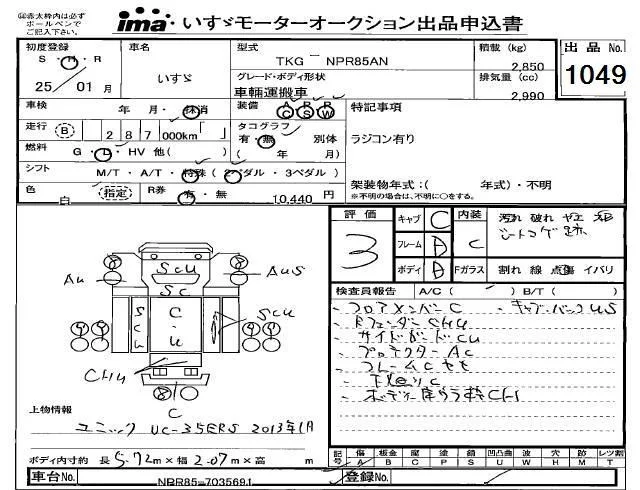 ㊟赤太枠内は必ず
ボールペンで
ご記入下さい。
ima いすゞモーターオークション出品申込書
初度登録 車名 型式 積載 (kg) 出品No.
S・H・R TKG NPR85AN 2,850
25/01月 いすゞ グレード・ボディ形状 排気量(cc) 1049
車輌運搬車 2,990
車検 年 月・抹消 装備 A P R C S W 特記事項
走行 B 287000km タコグラフ 有・無 別体 ラジコン有り
燃料 G・L・HV 他( ) ( 年 月)
シフト M/T・A/T・特殊 (2ペダル・3ペダル) 架装物年式:( 年式)・不明
色 白 (指定) R券 有・無 10,440円 ※不明の場合は、不明に○をする。
評価 3 キャブ C 内装 C 汚れ 破れ ヤエ
フレーム
ボディ Fガラス 割れ 線 点傷 イバリ
検査員報告 A/C( ) B/T( )
フロアメンバーC
FフェンダーCHU
サイドガードCU
プロテクターAC
フレームC
下廻りC
Au ScU AUS
SC
SCU C・U SCU
CHU
C
上物情報
ユニック UC-35ERS 2013年1月
ボディ内寸約 長5.72m×幅2.07m×高 m
記号 傷 板金 腐 塗 錆 凹 凹凸曲 波 穴 跡 レンズ割
A B C P S U W H M T
車台No. NPR85-7035691 登録No.